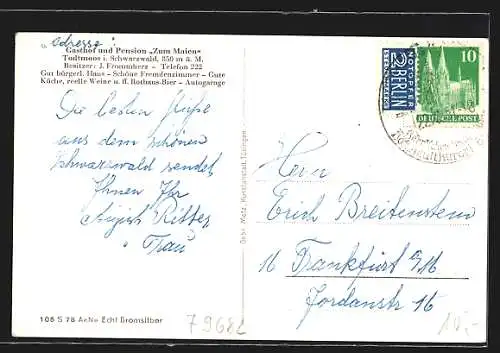 adresse:
Gasthof und Pension „Zum Maien“
Todtmoos i. Schwarzwald, 850 m ü. M.
Besitzer: J. Frommherz - Telefon 222
Gut bürgerl. Haus - Schöne Fremdenzimmer - Gute
Küche, reelle Weine u. ff. Rothaus-Bier - Autogarage
Die besten Grüße
aus dem schönen
Schwarzwald sendet
Ihnen Ihr
Ritter
Frau
108 S 78 AeNe Echt Bromsilber
79682
Gebr. Metz, Kunstanstalt, Tübingen
NOTOPFER
2 BERLIN
STEUERMARKE
10
DEUTSCHE POST
Herrn
Erich Breitenstein
16 Frankfurt a/M
Jordanstr 16
10,-